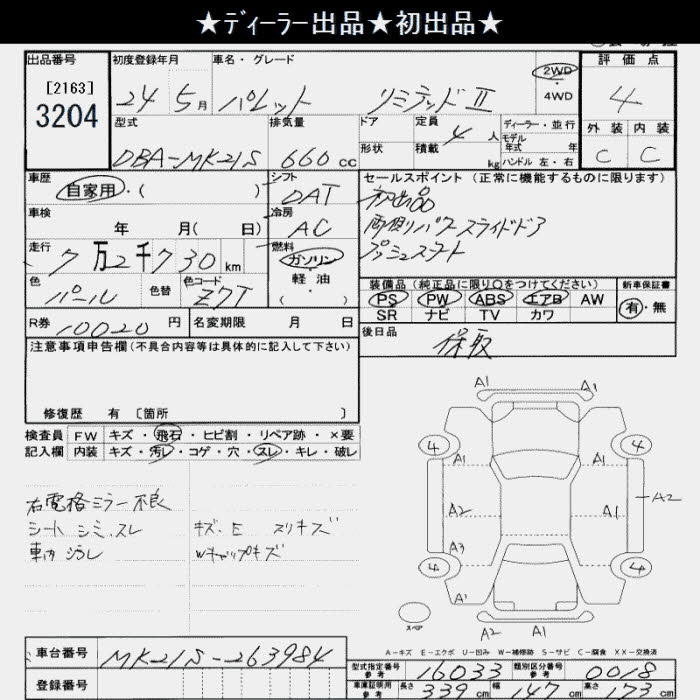 ★ディーラー出品★初出品★
出品番号 初度登録年月 車名・グレード 評価点
[2163] 3204 24 5月 パレット リミテッドⅡ 2WD ・ 4WD 4
型式 排気量 ドア 定員 4人 ディーラー・並行 外装 内装
DBA-MK21S 660cc 形状 積載 kg モデル年式 年 ハンドル 左・右 C C
車歴 自家用・( ) シフト DAT セールスポイント (正常に機能するものに限ります)
初出品
車検 年 月( 日) 冷房 AC 両側パワースライドドア
プッシュスタート
走行 7万2千730km 燃料 ガソリン・軽油・( )
色 パール 色替 色コード Z7T
装備品(純正品に限り○をつけてください) 新車保証書
PS PW ABS エアB AW 有・無
SR ナビ TV カワ
R券 10020円 名変期限 月 日 後日品
保取
注意事項申告欄(不具合内容等は具体的に記入して下さい)
修復歴 有 〔箇所 〕
検査員 FW キズ・飛石・ヒビ割・リペア跡・×要
記入欄 内装 キズ・汚レ・コゲ・穴・スレ・キレ・破レ
右電格ミラー不良
シート シミ、スレ キズ、E スリキズ
車内 ヨゴレ Wキャップキズ
A1 A1
4 4
A1 A1
A2 A1 A2
A3
4 4
A1 A1
スペア
A2 A1
A-キズ E-エクボ U-凹み W-補修跡 S-サビ C-腐食 XX-交換済
車台番号 MK21S-263984
登録番号
型式指定番号 参考 16033 類別区分番号 参考 0018
車庫証明用 参考 長さ 339cm 幅 147cm 高さ 173cm